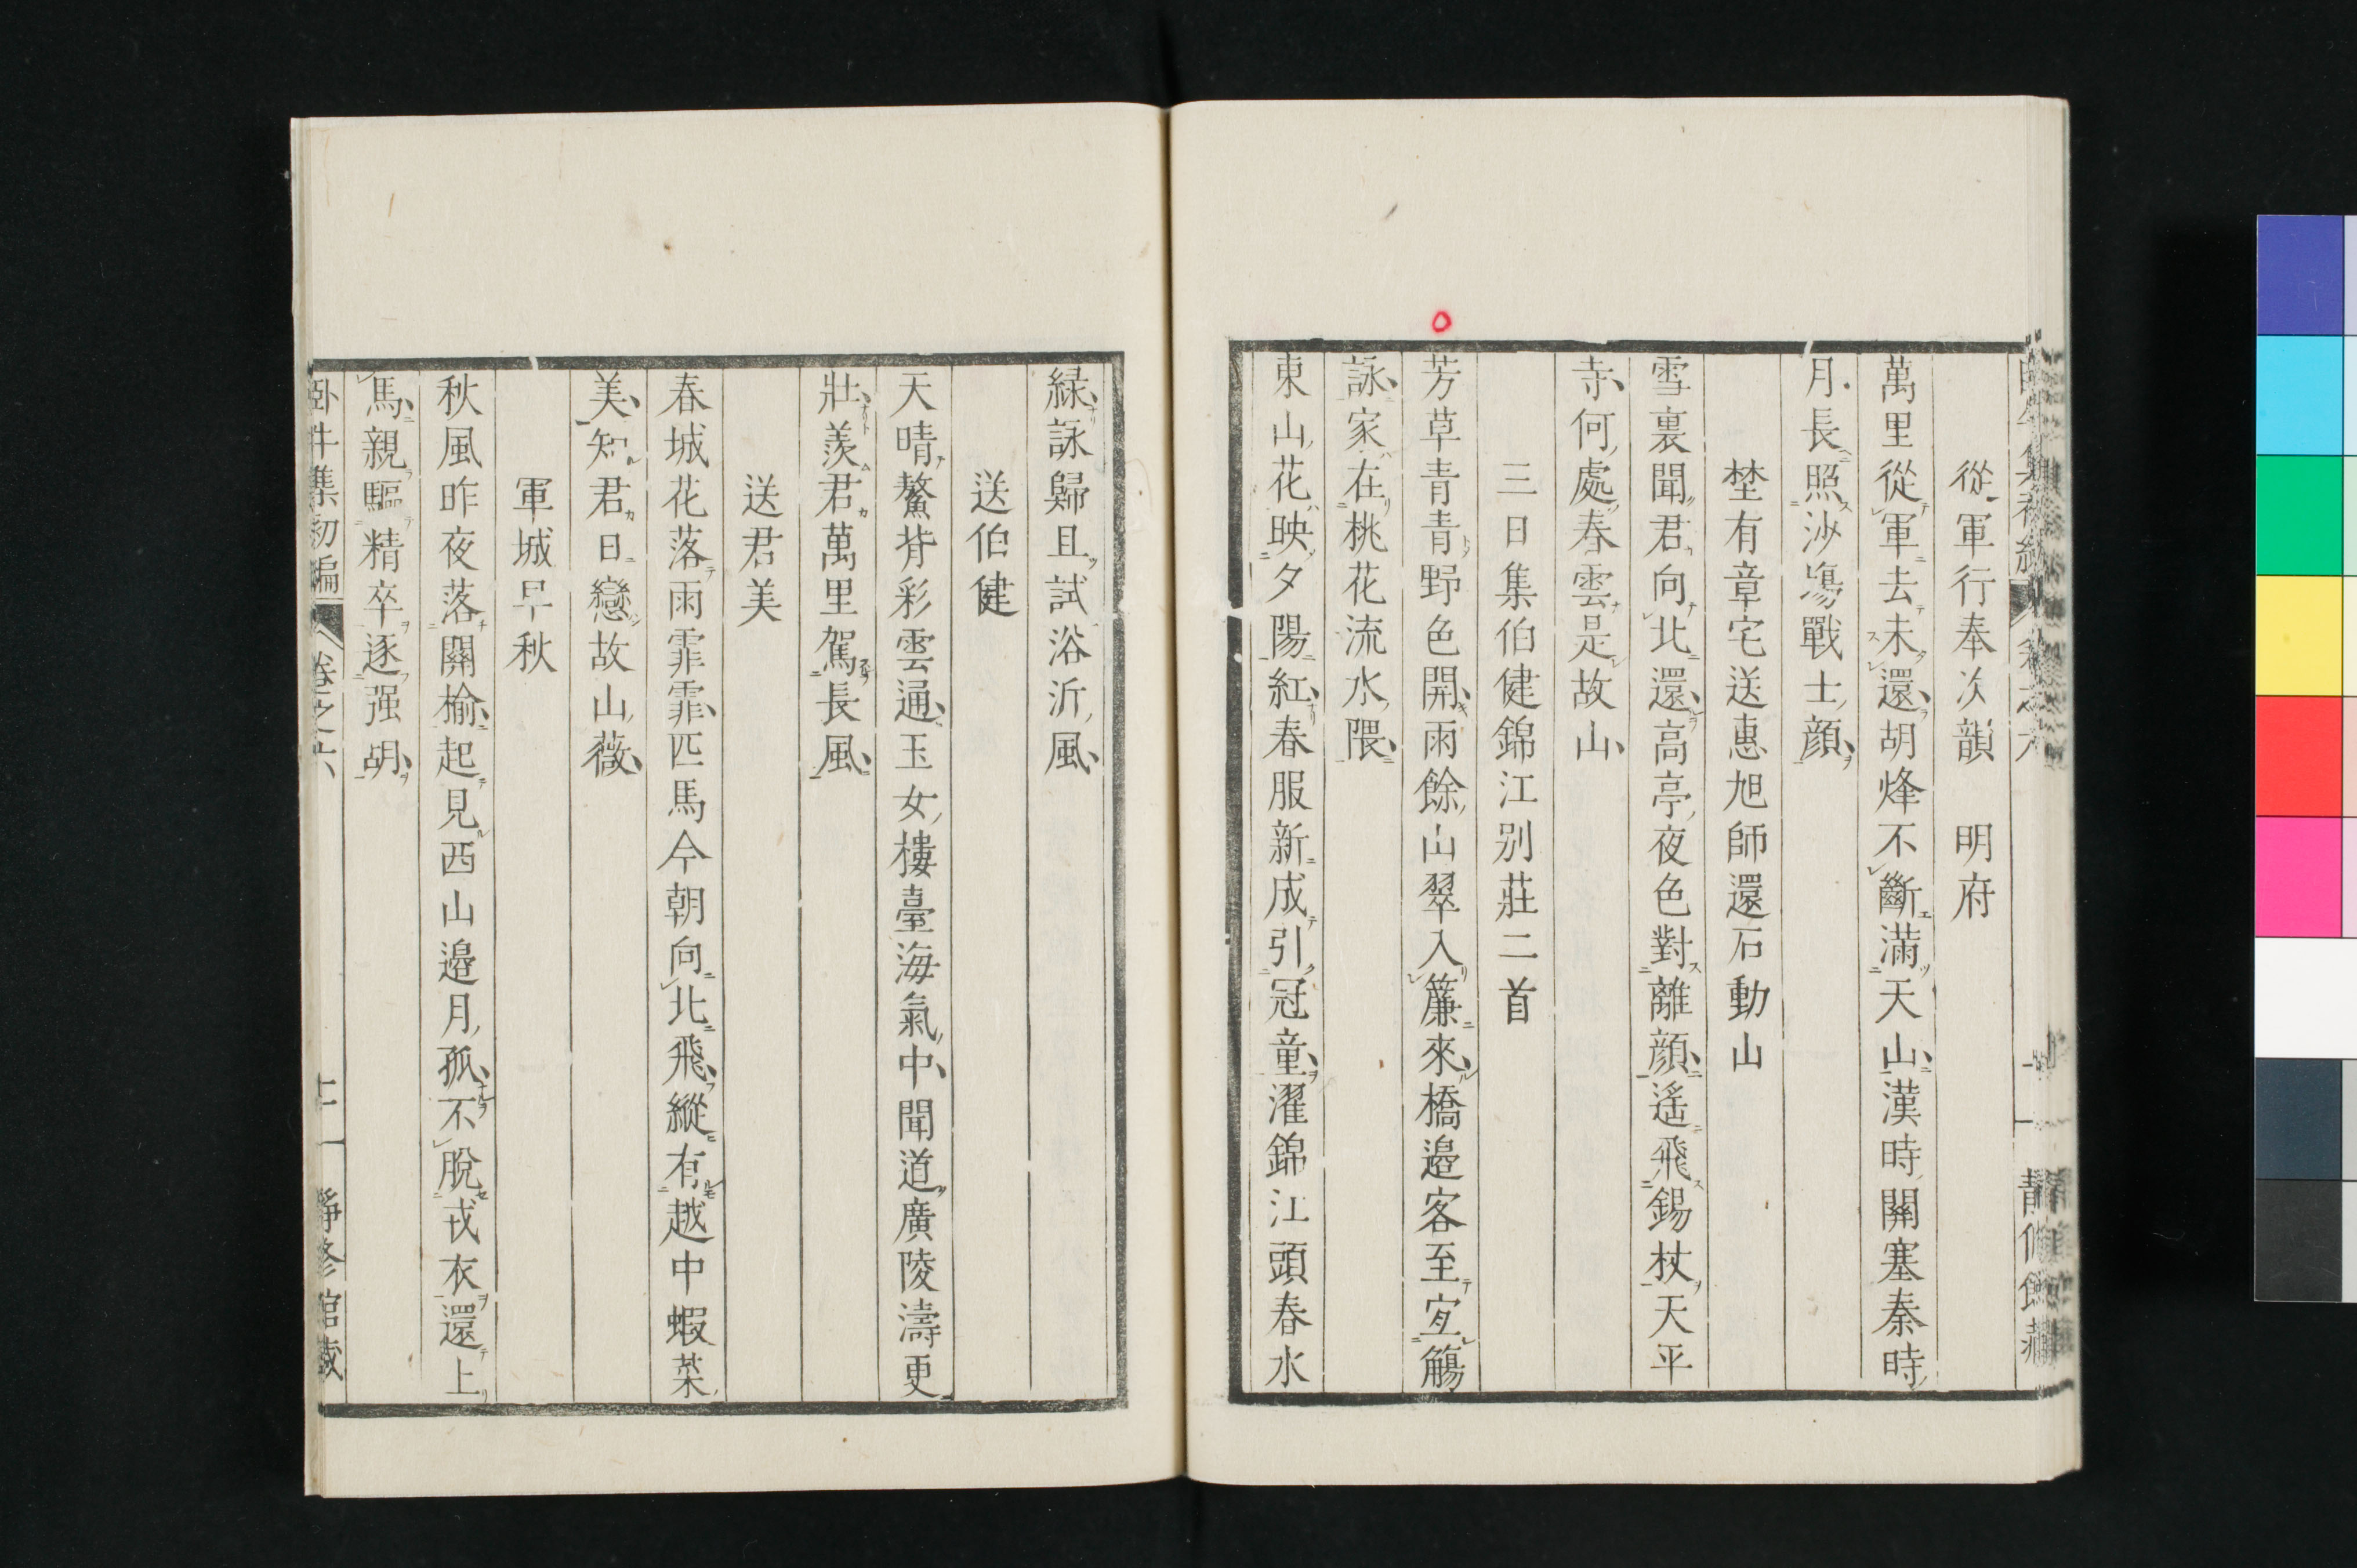 從軍行奉次韻　明府
萬里從軍去未還胡烽不斷滿天山漢時關塞秦時
月長照沙塲戰士顔
埜有章宅送惠旭師還石動山
雪裏聞君向北還高亭夜色對離顔遙飛錫杖天平
寺何處春雲是故山
三日集伯健錦江别莊二首
芳草青青野色開雨餘山翠入簾來橋邉客至宐觴
詠家在桃花流水隈
東山花映夕陽紅春服新成引冠童濯錦江頭春水
緑詠歸且試浴沂風
送伯健
天晴鰲背彩雲通玉女樓臺海氣中聞道廣陵濤更
壯羨君萬里駕長風
送君美
春城花落雨霏霏匹馬今朝向北飛縱有越中蝦菜
美知君日戀故山薇
軍城早秋
秋風昨夜落關榆起見西山邉月孤不脫戎衣還上
馬親驅精卒逐强胡
臥牛集初編　卷之六　十一　靜修館藏